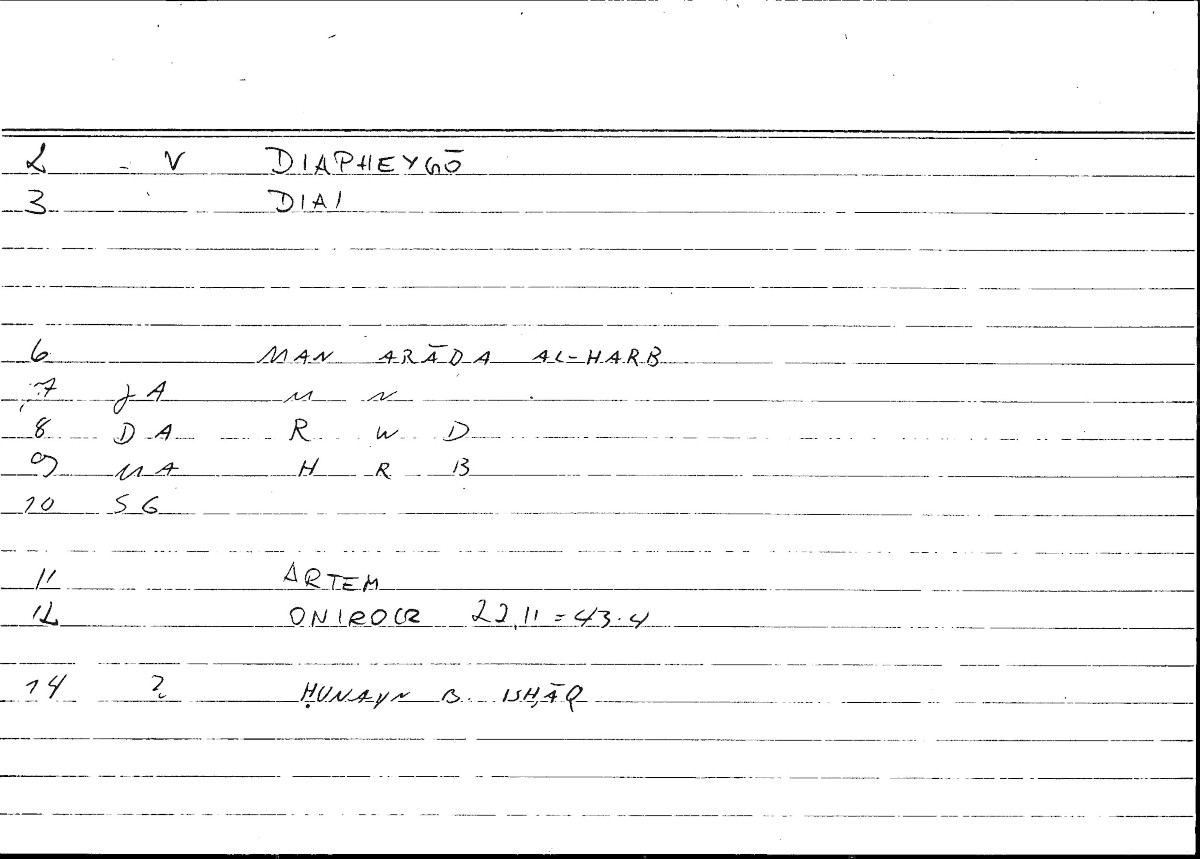 2 - V DIAPHEYGŌ
3 DIAI
6 MAN ARĀDA AL-HARB
7 JA M N
8 DA R W D
9 MA H R B
10 SG
11 ARTEM
12 ONIROCR 22,11 = 43.4
14 2 ḤUNAYN B. ISḤĀQ